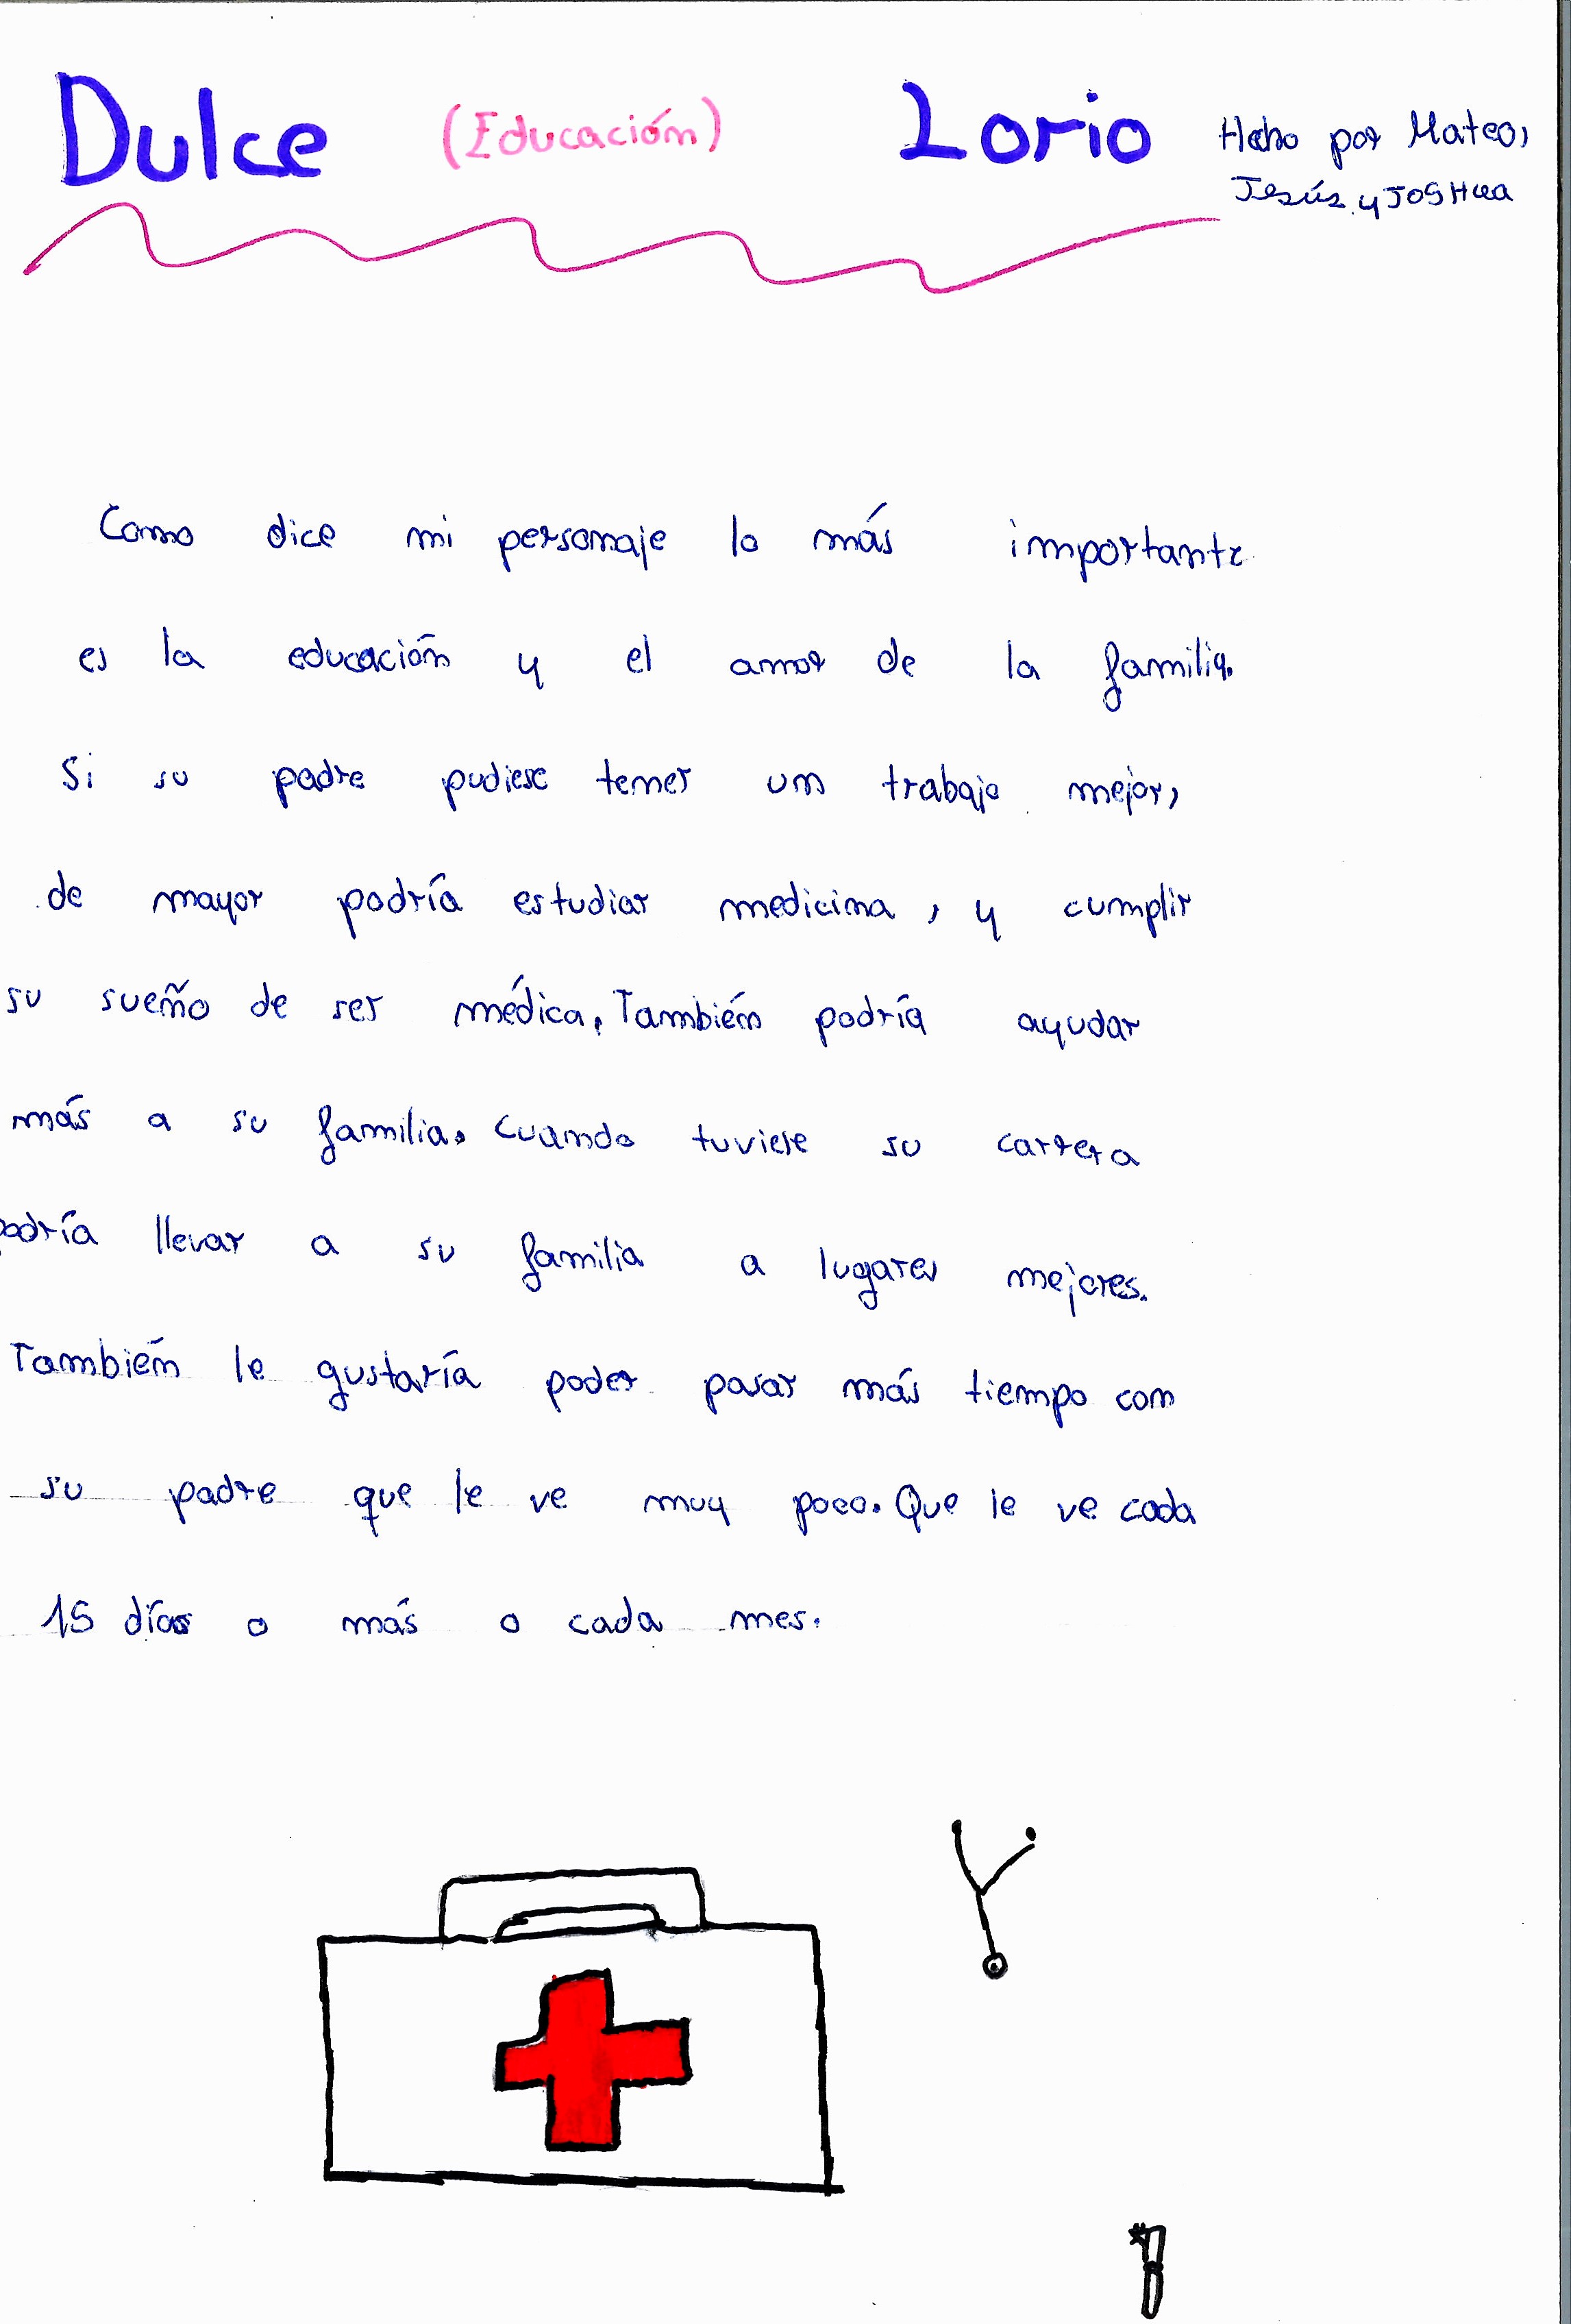 Dulce (Educación) Lorio Hecho por Mateo,
Jesús y JOSHua
Como dice mi personaje lo más importante
es la educación y el amor de la familia.
Si su padre pudiese tener un trabajo mejor,
de mayor podría estudiar medicina, y cumplir
su sueño de ser médica. También podría ayudar
más a su familia. Cuando tuviese su carrera
podría llevar a su familia a lugares mejores.
También le gustaría poder pasar más tiempo con
su padre que le ve muy poco. Que le ve cada
15 días o más o cada mes.